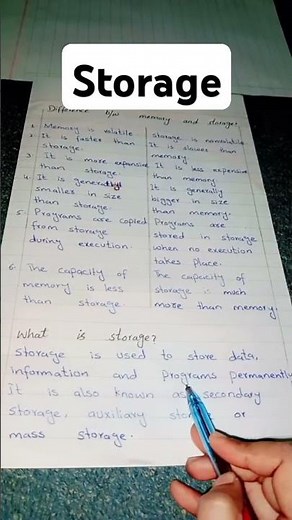 Storage
Difference b/w memory and storage?
1. Memory is volatile
2. It is faster than
storage.
3. It is more expensive
than storage.
4. It is generally
smaller in size
than storage
5. Programs are copied
from storage
during execution.
6. The capacity of
memory is less
than storage.
storage is nonvolatile
It is slower than
memory
It is less expensive
than memory.
It is generally
bigger in size
than memory.
Programs are
stored in storage
when no execution
takes place.
The capacity of
storage is much
more than memory.
What is storage?
Storage is used to store data,
information and programs permanently
It is also known as secondary
storage, auxiliary or
mass storage.